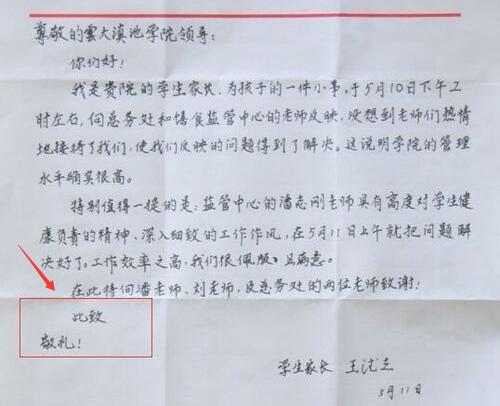 尊敬的雲大滇池学院领导:
你们好!
我是贵院的学生家长,为孩子的一件小事,于5月10日下午
时左右,向总务处和膳食监管中心的老师反映,没想到老师们热情
地接待了我们,使我们反映的问题得到了解决。这说明学院的管理
水平确实很高。
特别值得一提的是:监管中心的潘志刚老师具有高度对学生健
康负责的精神、深入细致的工作作风,在5月11日上午就把问题解
决好了。工作效率之高,我们很佩服、且满意。
在此特向潘老师、刘老师,及总务处的两位老师致谢!
此致
敬礼!
学生家长 王
5月11日